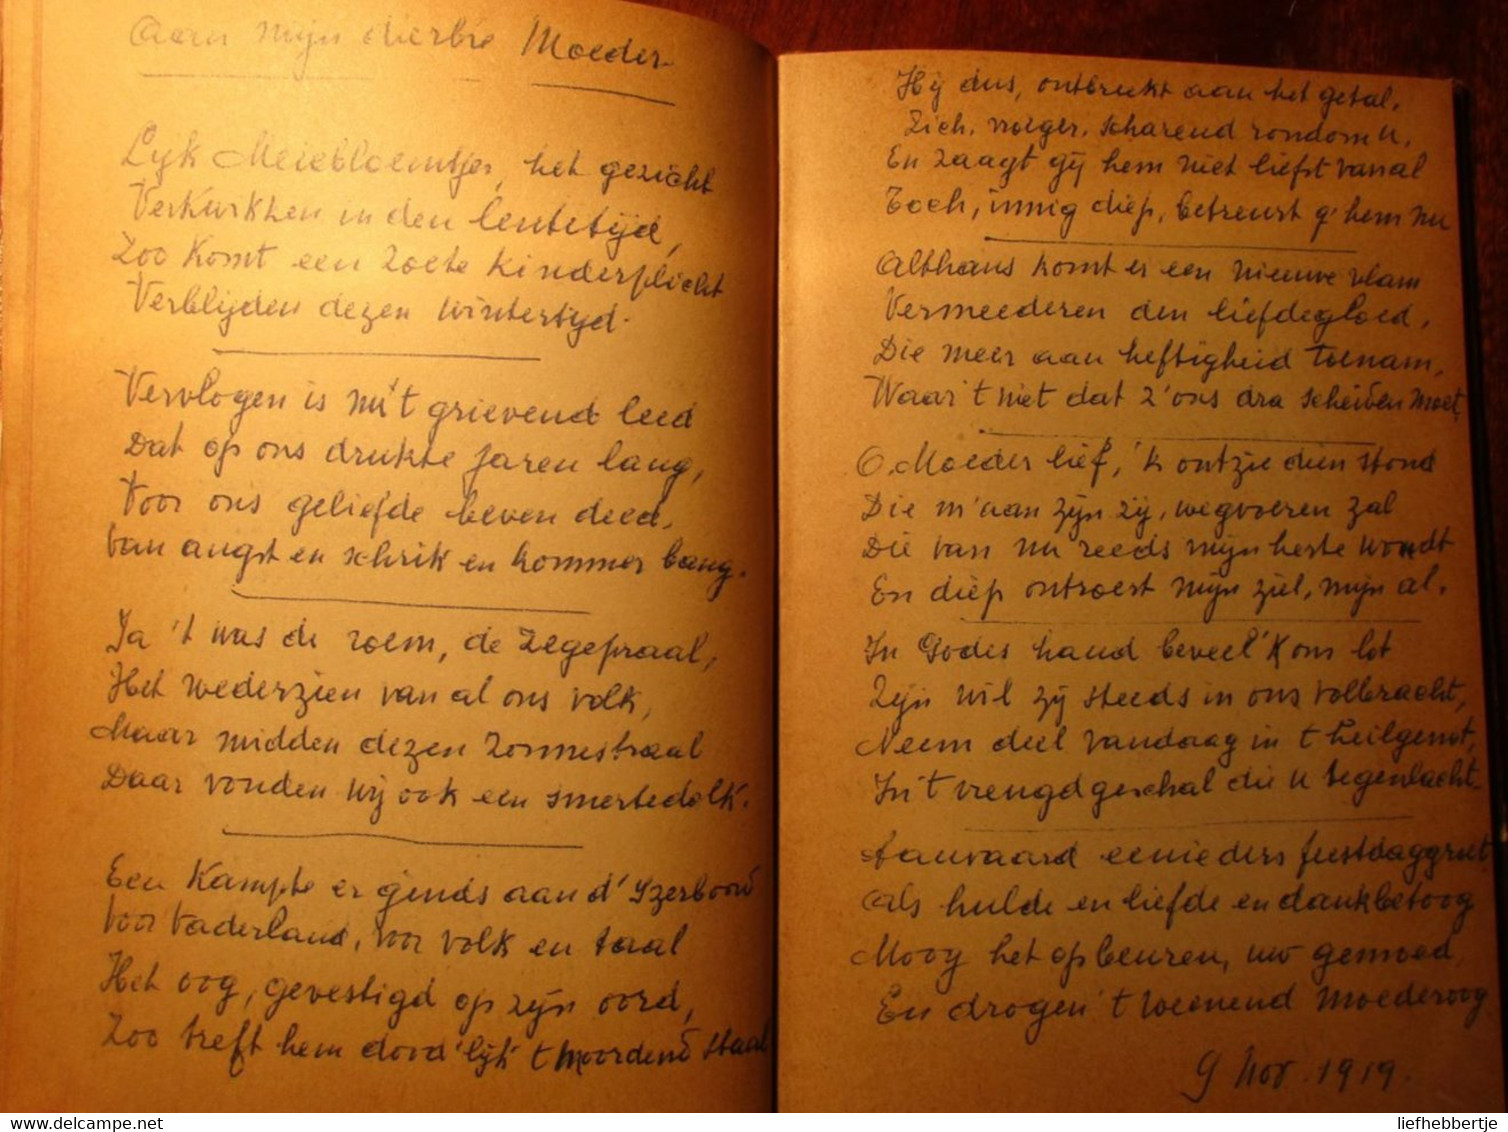 Aan mijn dierbre Moeder.
Lijk Meiebloemtjes, het gezicht
Verkwikken in den lentetijd,
Zoo komt een zoete kinderplicht
Verblijden dezen wintertijd.
Vervlogen is nu 't grievend leed
Dat op ons drukte jaren lang,
Voor ons geliefde beven deed,
Van angst en schrik en kommer bang.
Ja 't was de roem, de zegepraal,
Het wederzien van al ons volk,
Maar midden dezen zonnestraal
Daar vonden wij ook een smertedolk.
Een kampte er ginds aan d' Yzerboord
Voor Vaderland, voor volk en taal
Het oog, gevestigd op zijn oord,
Zoo treft hem dood'lijk 't moordend staal
Hij dus, ontbreekt aan het getal,
Zich, vroeger, scharend rondom u,
En zaagt gij hem niet liefst van al
Toch, innig diep, betreurt g' hem nu
Althans komt er een nieuwe vlam
Vermeederen den liefdegloed,
Die meer aan heftigheid toenam,
Waar 't niet dat z' ons dra scheiden moet.
O. Moeder lief, 'k ontzie dien stond
Die m' aan zijn zij, wegvoeren zal
Die van nu reeds mijn herte wondt
En diep ontroert mijn ziel, mijn al.
In Godes hand beveel 'k ons lot
Zijn wil zij steeds in ons volbracht,
Neem deel vandaag in 't heilgenot,
In 't vreugdgeschal die u tegenlacht.
Aanvaard eenieders feestdaggroet
Als hulde en liefde en dankbetoog
Moog het opbeuren, uw gemoed,
En drogen 't weenend moederoog
9 Nov. 1919.
liefhebbertje